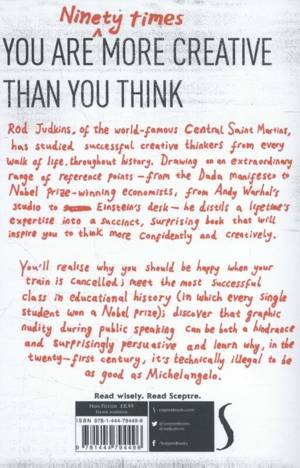 Ninety times
YOU ARE ^ MORE CREATIVE
THAN YOU THINK
Rod Judkins, of the world-famous Central Saint Martins,
has studied successful creative thinkers from every
walk of life, throughout history. Drawing on an extraordinary
range of reference points – from the Dada manifesto to
Nobel Prize-winning economists, from Andy Warhol's
studio to Einstein's desk – he distils a lifetime's
expertise into a succinct, surprising book that will
inspire you to think more confidently and creatively.
You'll realise why you should be happy when your
train is cancelled; meet the most successful
class in educational history (in which every single
student won a Nobel prize); discover that graphic
nudity during public speaking can be both a hindrance
and surprisingly persuasive and learn why, in the
twenty-first century, it's technically illegal to be
as good as Michelangelo.
Read wisely. Read Sceptre.
Non Fiction £8.99
ISBN 978-1-444-79449-8
9 781444 794498